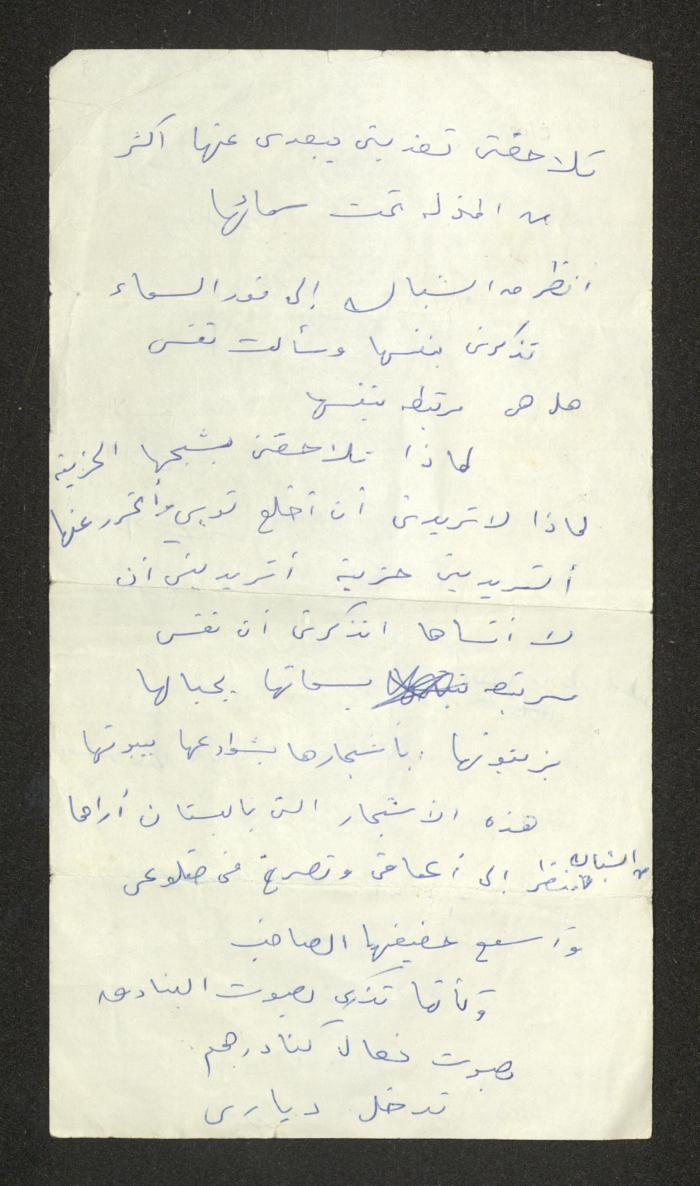 تلاحقني تعذبني يبعدي عنها أكثر
من المذلة تحت سمائها
انظر من الشباك إلى نور السماء
تذكرني بنفسها وسألت نفسي
هل هي مرتبطة بنفسها
لماذا تلاحقني بشبحها الحزين
لماذا لا تريدني أن أخلع ثوبي وأتحرر عنها
أتريديني حزينة أتريديني أن
لا أنساها اتذكرني أن نفسي
مرتبطة بسمائها بجبالها
بزيتونها بأشجارها بشوارعها ببيوتها
هذه الأشجار التي بالبستان أراها
من الشباك تنظر إلى أعماقي وتصرخ في ضلوعي
وأسمع حفيفها الصاخب
وكأنها تذكرني بصوت البنادق
بصوت نعال كنادرهم
تدخل دياري